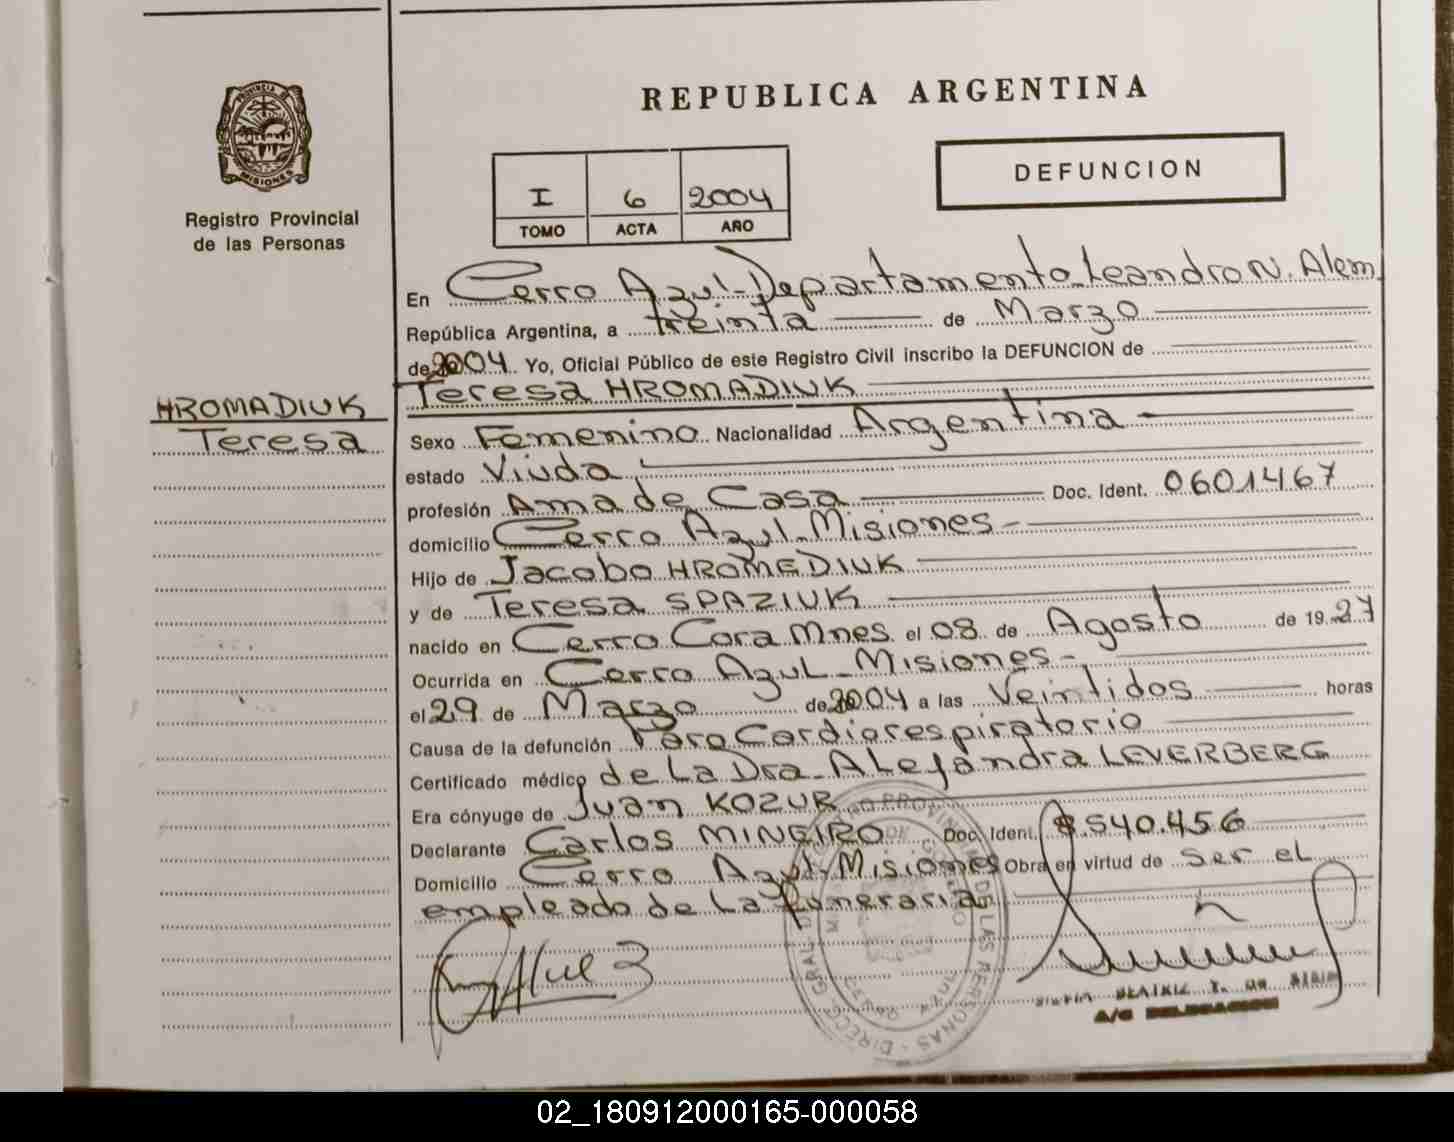 REPUBLICA ARGENTINA
PROVINCIA DE MISIONES
Registro Provincial
de las Personas
I 6 2004
TOMO ACTA AÑO
DEFUNCION
En Cerro Azul-Departamento Leandro N. Alem
República Argentina, a treinta de Marzo
de 2004 Yo, Oficial Público de este Registro Civil inscribo la DEFUNCION de
Teresa HROMADIUK
HROMADIUK
Teresa
Sexo Femenino Nacionalidad Argentina
estado Viuda
profesión Ama de Casa Doc. Ident. 0601467
domicilio Cerro Azul-Misiones-
Hijo de Jacobo HROMEDIUK
y de Teresa SPAZIUK
nacido en Cerro Cora Mnes. el 08 de Agosto de 19 27
Ocurrida en Cerro Azul-Misiones-
el 29 de Marzo de 2004 a las Veintidos horas
Causa de la defunción Paro Cardiorespiratorio
Certificado médico de La Dra. Alejandra LEVERBERG
Era cónyuge de Juan KOZUR
Declarante Carlos MINEIRO Doc. Ident. 8.540.456
Domicilio Cerro Azul-Misiones Obra en virtud de ser el
empleado de La funeraria
A/C DELEGACION
02_180912000165-000058